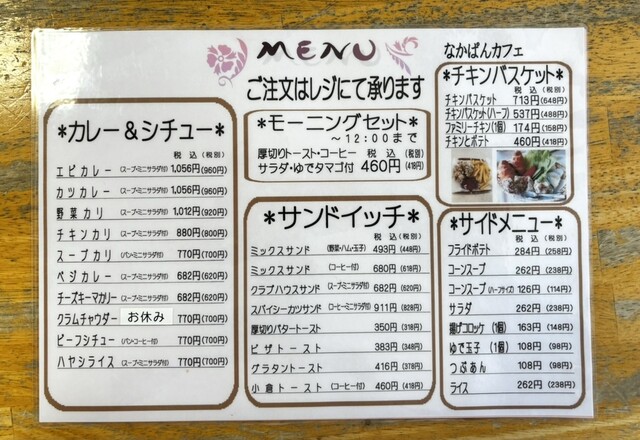 MENU
なかばんカフェ
ご注文はレジにて承ります
*カレー&シチュー*
税込 (税別)
エビカレー (スープ・ミニサラダ付) 1,056円(960円)
カツカレー (スープ・ミニサラダ付) 1,056円(960円)
野菜カリ (スープ・ミニサラダ付) 1,012円(920円)
チキンカリ (スープ・ミニサラダ付) 880円(800円)
スープカリ (パン・ミニサラダ付) 770円(700円)
ベジカレー (スープ・ミニサラダ付) 682円(620円)
チーズキーマカリー (スープ・ミニサラダ付) 682円(620円)
クラムチャウダー お休み 770円(700円)
ビーフシチュー (パン・コーヒー付) 770円(700円)
ハヤシライス (スープ・ミニサラダ付) 770円(700円)
*モーニングセット*
~12:00まで
厚切りトースト・コーヒー 税込 (税別)
サラダ・ゆでタマゴ付 460円(418円)
*サンドイッチ*
税込 (税別)
ミックスサンド (野菜・ハム・玉子) 493円(448円)
ミックスサンド (コーヒー付) 680円(618円)
クラブハウスサンド (スープ・ミニサラダ付) 682円(620円)
スパイシーカツサンド (コーヒーミニサラダ付) 911円(828円)
厚切りバタートースト 350円(318円)
ピザトースト 383円(348円)
グラタントースト 416円(378円)
小倉トースト (コーヒー付) 460円(418円)
*チキンバスケット*
税込 (税別)
チキンバスケット 713円(648円)
チキンバスケット(ハーフ) 537円(488円)
ファミリーチキン(1個) 174円(158円)
チキンとポテト 460円(418円)
*サイドメニュー*
税込 (税別)
フライドポテト 284円(258円)
コーンスープ 262円(238円)
コーンスープ (ハーフサイズ) 126円(114円)
サラダ 262円(238円)
揚げコロッケ (1個) 163円(148円)
ゆで玉子 (1個) 108円(98円)
つぶあん 108円(98円)
ライス 262円(238円)